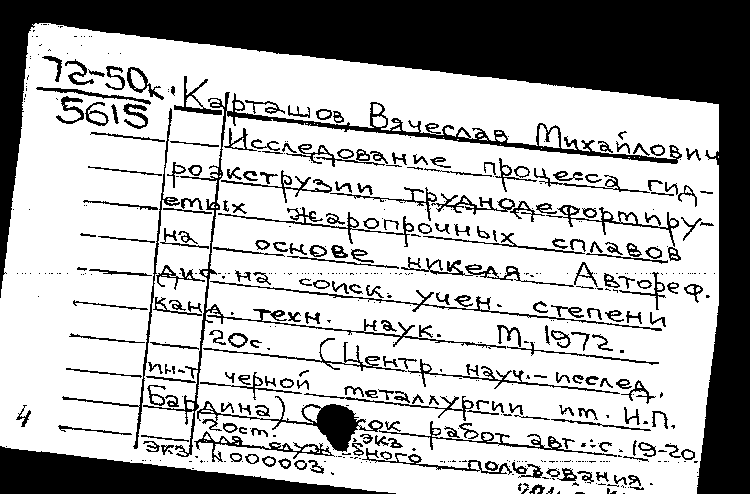 72-50к
5615
Карташов, Вячеслав Михайлович
Исследование процесса гид-
роэкструзии труднодеформиру-
емых жаропрочных сплавов
на основе никеля. Автореф.
дис. на соиск. учен. степени
канд. техн. наук. М., 1972.
20с. (Центр. науч.-исслед.
ин-т черной металлургии им. И.П.
Бардина)
работ авт.: с. 19-20.
экз.
Для пользования.
экз. N000003.
4